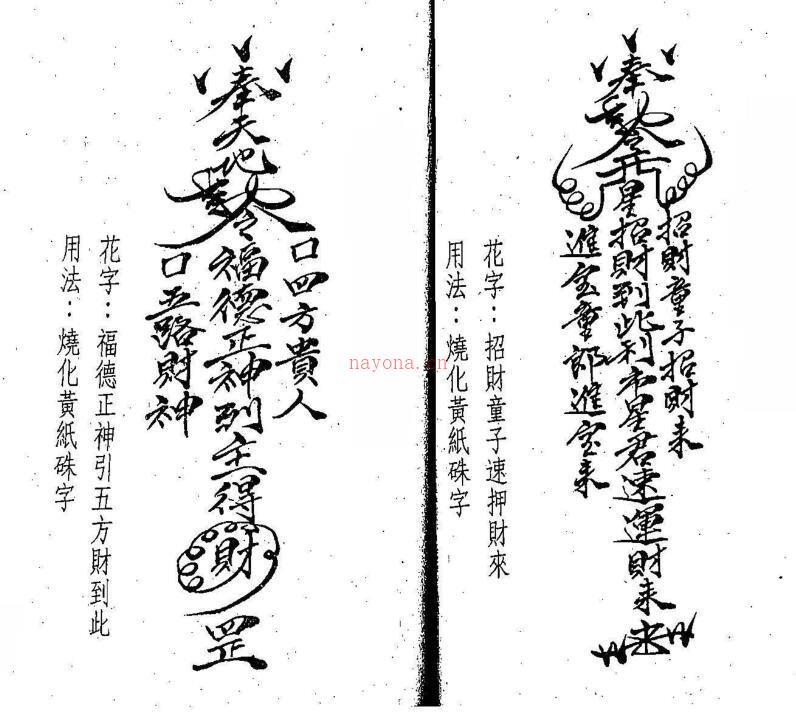 招財童子招財来
奉
星招財到此利市星君速運財来
進宝童郎進宝来
花字：招財童子速押財來
用法：燒化黃紙硃字
口四方貴人
奉天地
令福德正神到主得財罡
口五路財神
花字：福德正神引五方財到此
用法：燒化黃紙硃字
nayona.cn